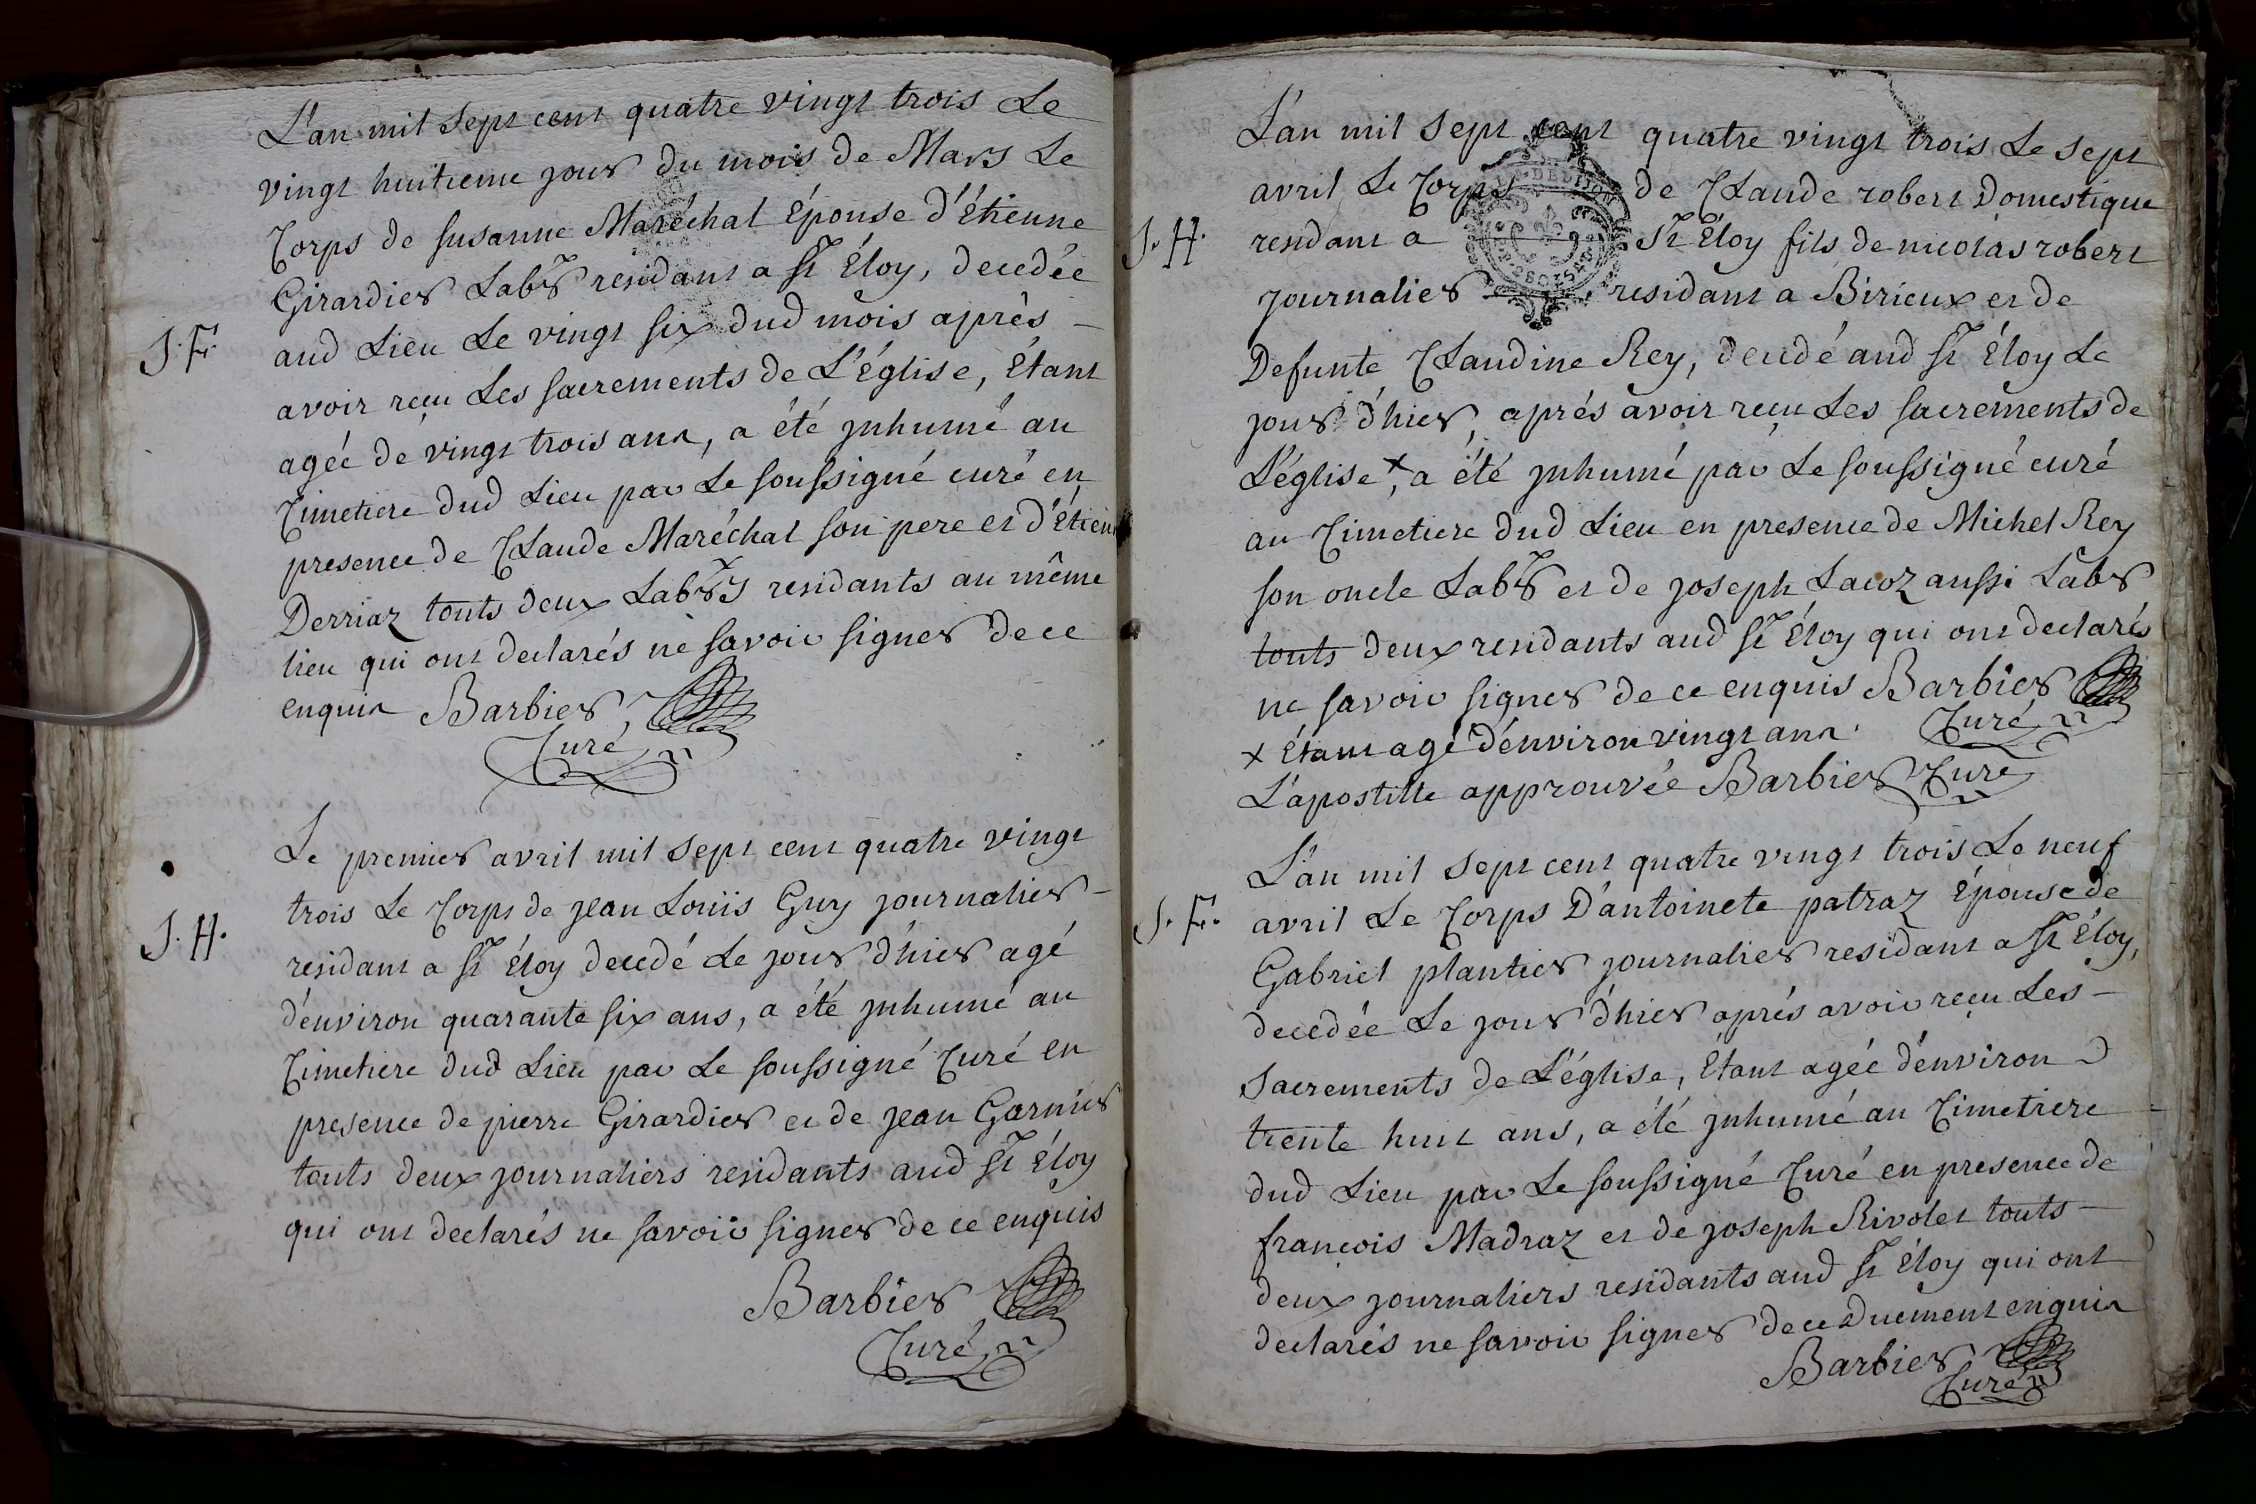 L'an mil sept cent quatre vingt trois Le
vingt huitieme jour du mois de Mars Le
Corps de susanne Maréchal Épouse d'Étienne
Girardier Labr residant a St Éloy, decedée
aud Lieu Le vingt six dud mois aprés –
S. F.
avoir reçu Les sacrements de L'Église, Étant
agée de vingt trois ans, a été jnhumé au
Cimetiere dud Lieu par Le soussigné curé en
presence de Claude Maréchal son pere et d'Étien
Derriaz touts deux Labrs residants au même
lieu qui ont declarés ne savoir signer de ce
enquis Barbier,
Curé
Le premier avril mil sept cent quatre vingt
trois Le Corps de jean Loüis Guy journalier –
S. H.
residant a St Éloy decedé Le jour d'hier agé
d'environ quarante six ans, a été jnhumé au
Cimetiere dud Lieu par Le soussigné Curé en
presence de pierre Girardier et de jean Garnier
touts deux journaliers residants aud St Éloy
qui ont declarés ne savoir signer de ce enquis
Barbier
Curé
L'an mil sept cent quatre vingt trois Le sept
avril Le Corps de Claude robert Domestique
S. H.
residant a St Éloy fils de nicolas robert
journalier residant a Birieux et de
Defunte Claudine Rey, decedé aud St Éloy Le
jour d'hier, aprés avoir reçu Les sacrements de
L'église x, a été jnhumé par Le soussigné curé
au Cimetiere dud Lieu en presence de Michel Rey
son oncle Labr et de joseph Lacoz aussi Labr
touts deux residants aud St Éloy qui ont declarés
ne savoir signer de ce enquis Barbier
Curé
x Étant agé d'environ vingt ans.
L'apostille approuvée Barbier Curé
L'an mil sept cent quatre vingt trois Le neuf
S. F.
avril Le Corps D'antoinete patraz Épouse de
Gabriel plantier journalier residant a St Éloy,
decedée Le jour d'hier aprés avoir reçu Les –
Sacrements de L'église, Étant agée d'environ
trente huit ans, a été jnhumé au Cimetiere
dud Lieu par Le soussigné Curé en presence de
francois Madraz et de joseph Rivolet touts –
deux journaliers residants aud St Éloy qui ont
declarés ne savoir signer de ce Duement enquis
Barbier
Curé